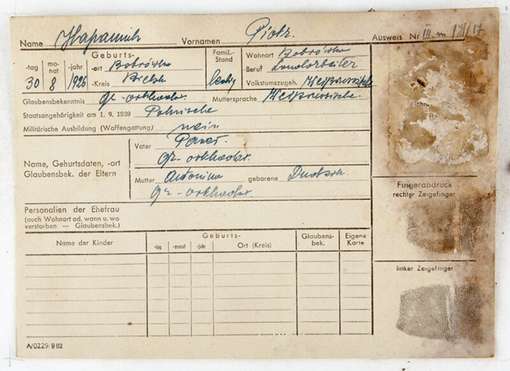 Name Vornamen Piotr Ausweis Nr
-tag mo-nat -jahr Geburts- Famil.- Stand Wohnort
-ort Beruf Landarbeiter
30 8 1926 -Kreis Bielsk ledig Volkstumszugeh. Weißrussische
Glaubensbekenntnis gr.-orthodox. Muttersprache Weißrussische
Staatsangehörigkeit am 1. 9. 1939 Polnische
Militärische Ausbildung (Waffengattung) nein
Name, Geburtsdaten, -ort
Glaubensbek. der Eltern
Vater Paweł
gr. orthodox.
Mutter Antonina geborene
gr.-orthodox.
Fingerabdruck
rechter Zeigefinger
Personalien der Ehefrau
(auch Wohnort od. wann u. wo
verstorben — Glaubensbek.)
Name der Kinder Geburts- Glaubens- bek. Eigene Karte
-tag -monat -jahr Ort (Kreis)
linker Zeigefinger
A/0229/9112